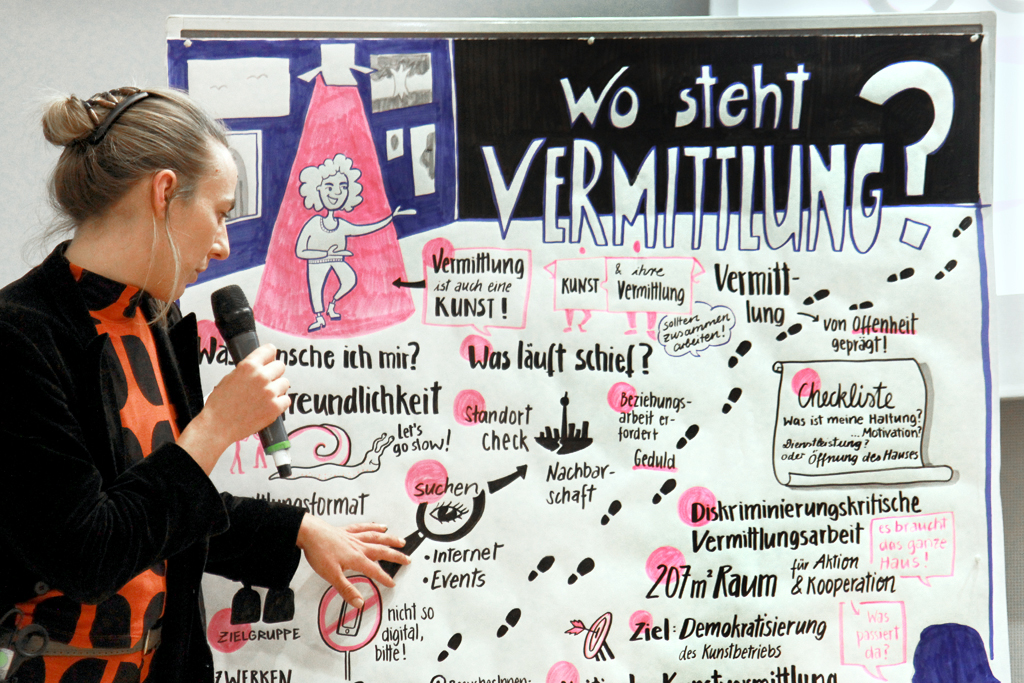 Wo steht
VERMITTLUNG?
Vermittlung
ist auch eine
KUNST!
KUNST
& ihre
Vermittlung
sollten
zusammen
arbeiten!
Vermitt-
lung
von Offenheit
geprägt!
ich mir?
Was läuft schief?
freundlichkeit
Let's
go slow!
Standort
check
Beziehungs-
arbeit er-
fordert
Geduld
Nachbar-
schaft
Checkliste
Was ist meine Haltung?
...Motivation?
Dienstleistung?
oder Öffnung des Hauses
suchen
• Internet
• Events
Diskriminierungskritische
Vermittlungsarbeit
es braucht
das ganze
Haus!
207m² Raum
für Aktion
& Kooperation
ZIELGRUPPE
nicht so
digital,
bitte!
Ziel: Demokratisierung
des Kunstbetriebs
Was
passiert
da?
Kunstvermittlung